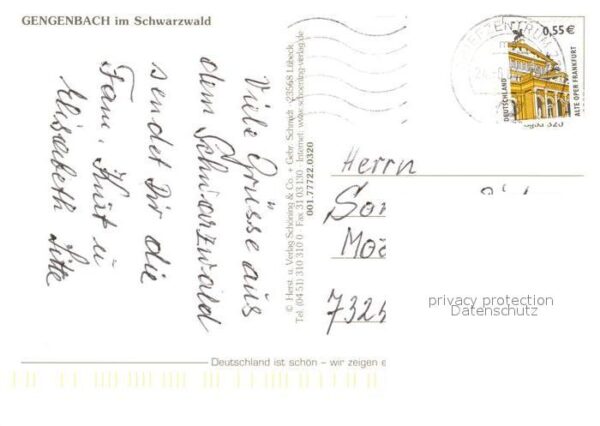 GENGENBACH im Schwarzwald
Viele Grüsse aus
dem Schwarzwald
sendet Dir die
Fam. Kurt u
Elisabeth
© Herst. u. Verlag Schöning & Co. + Gebr. Schmidt · 23568 Lübeck
Tel. (04 51) 310 310 0 · Fax 31 03 130 · Internet: www.schoening-verlag.de
001.77722.0320
BRIEFZENTRUM
0,55 €
DEUTSCHLAND
ALTE OPER FRANKFURT
Herrn
7324
privacy protection
Datenschutz
Deutschland ist schön – wir zeigen e